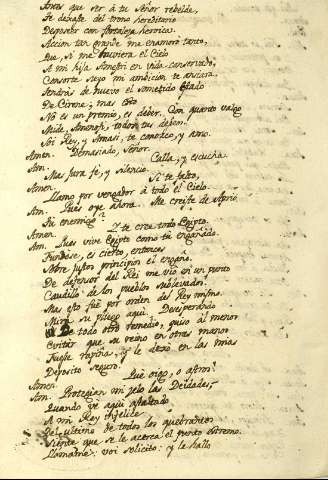 Antes que ser à tu Señor rebelde,
Te dexaste del trono hereditario
Deposeer con fortaleza heroica.
Accion tan grande me enamorò tanto,
Que, si me huviera el Cielo
A mi hija Amestri en vida conservado,
Consorte suyo mi ambicion te ansiara.
Tendràs de nuevo el sometido Estado
De Cirene; mas esto
No es un premio, es deber. Con quanto valgo
Mide, Amenofi, todos tus deberes.
Soi Rey, y Amasi, te conozco, y amo.
Amen. Demasiado, Señor.
Am. Calla, y escucha.
Mas jura fe, y silencio.
Amen. Si te falto,
Llamo por vengador à todo el Cielo.
Am. Pues oye ahora. Me creiste de Aprio
Tu enemigo?
Amen. Y te cree todo Egipto.
Am. Pues vive Egipto como tu engañado.
Fundose, es cierto, entonces
Sobre justos principios el engaño.
De defensor del Rei me viò en un punto
Caudillo de los pueblos sublevados.
Mas esto fuè por orden del Rey mismo.
Mira su pliego aqui. Desesperando
De todo otro remedio, quiso al menos
Evitar que su reino en otras manos
Fuese rapiña, y le dexò en las mias
Deposito seguro.
Amen. Què oigo, o astros!
Am. Protegian mi zelo las Deidades;
Quando vè aqui asaltado
A mi Rey infelice
Del ultimo de todos los quebrantos.
Siente que se le acerca el punto extremo.
Llamame: voi solicito: y le hallo